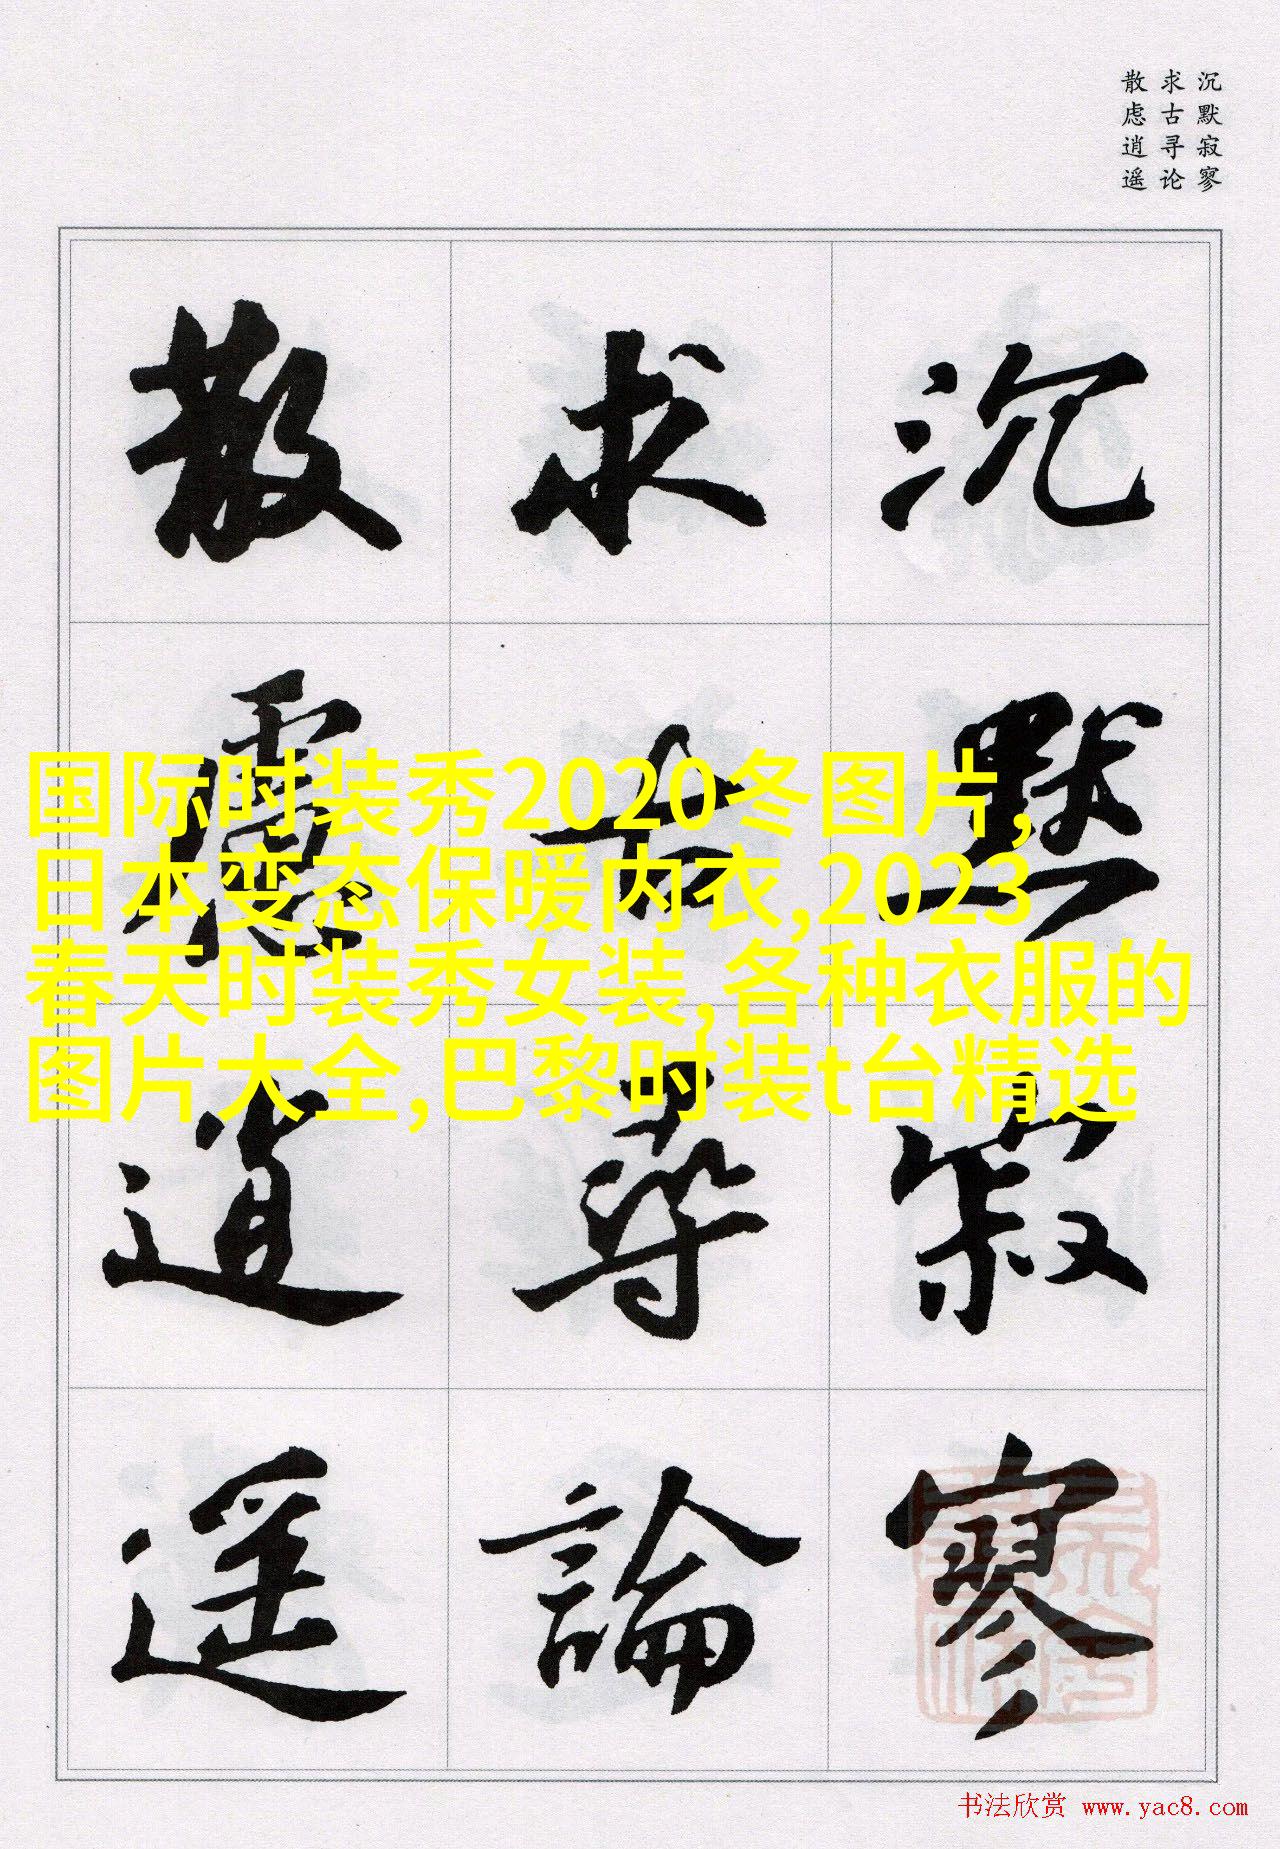 沉默寂寥
求古寻论
散虑逍遥
沉默寂寥
求古尋論
散慮逍遥
国际时装秀2020冬图片,
日本变态保暖内衣,2023
春天时装秀女装,各种衣服的
图片大全,巴黎时装t台精选
书法欣赏 www.yac8.com